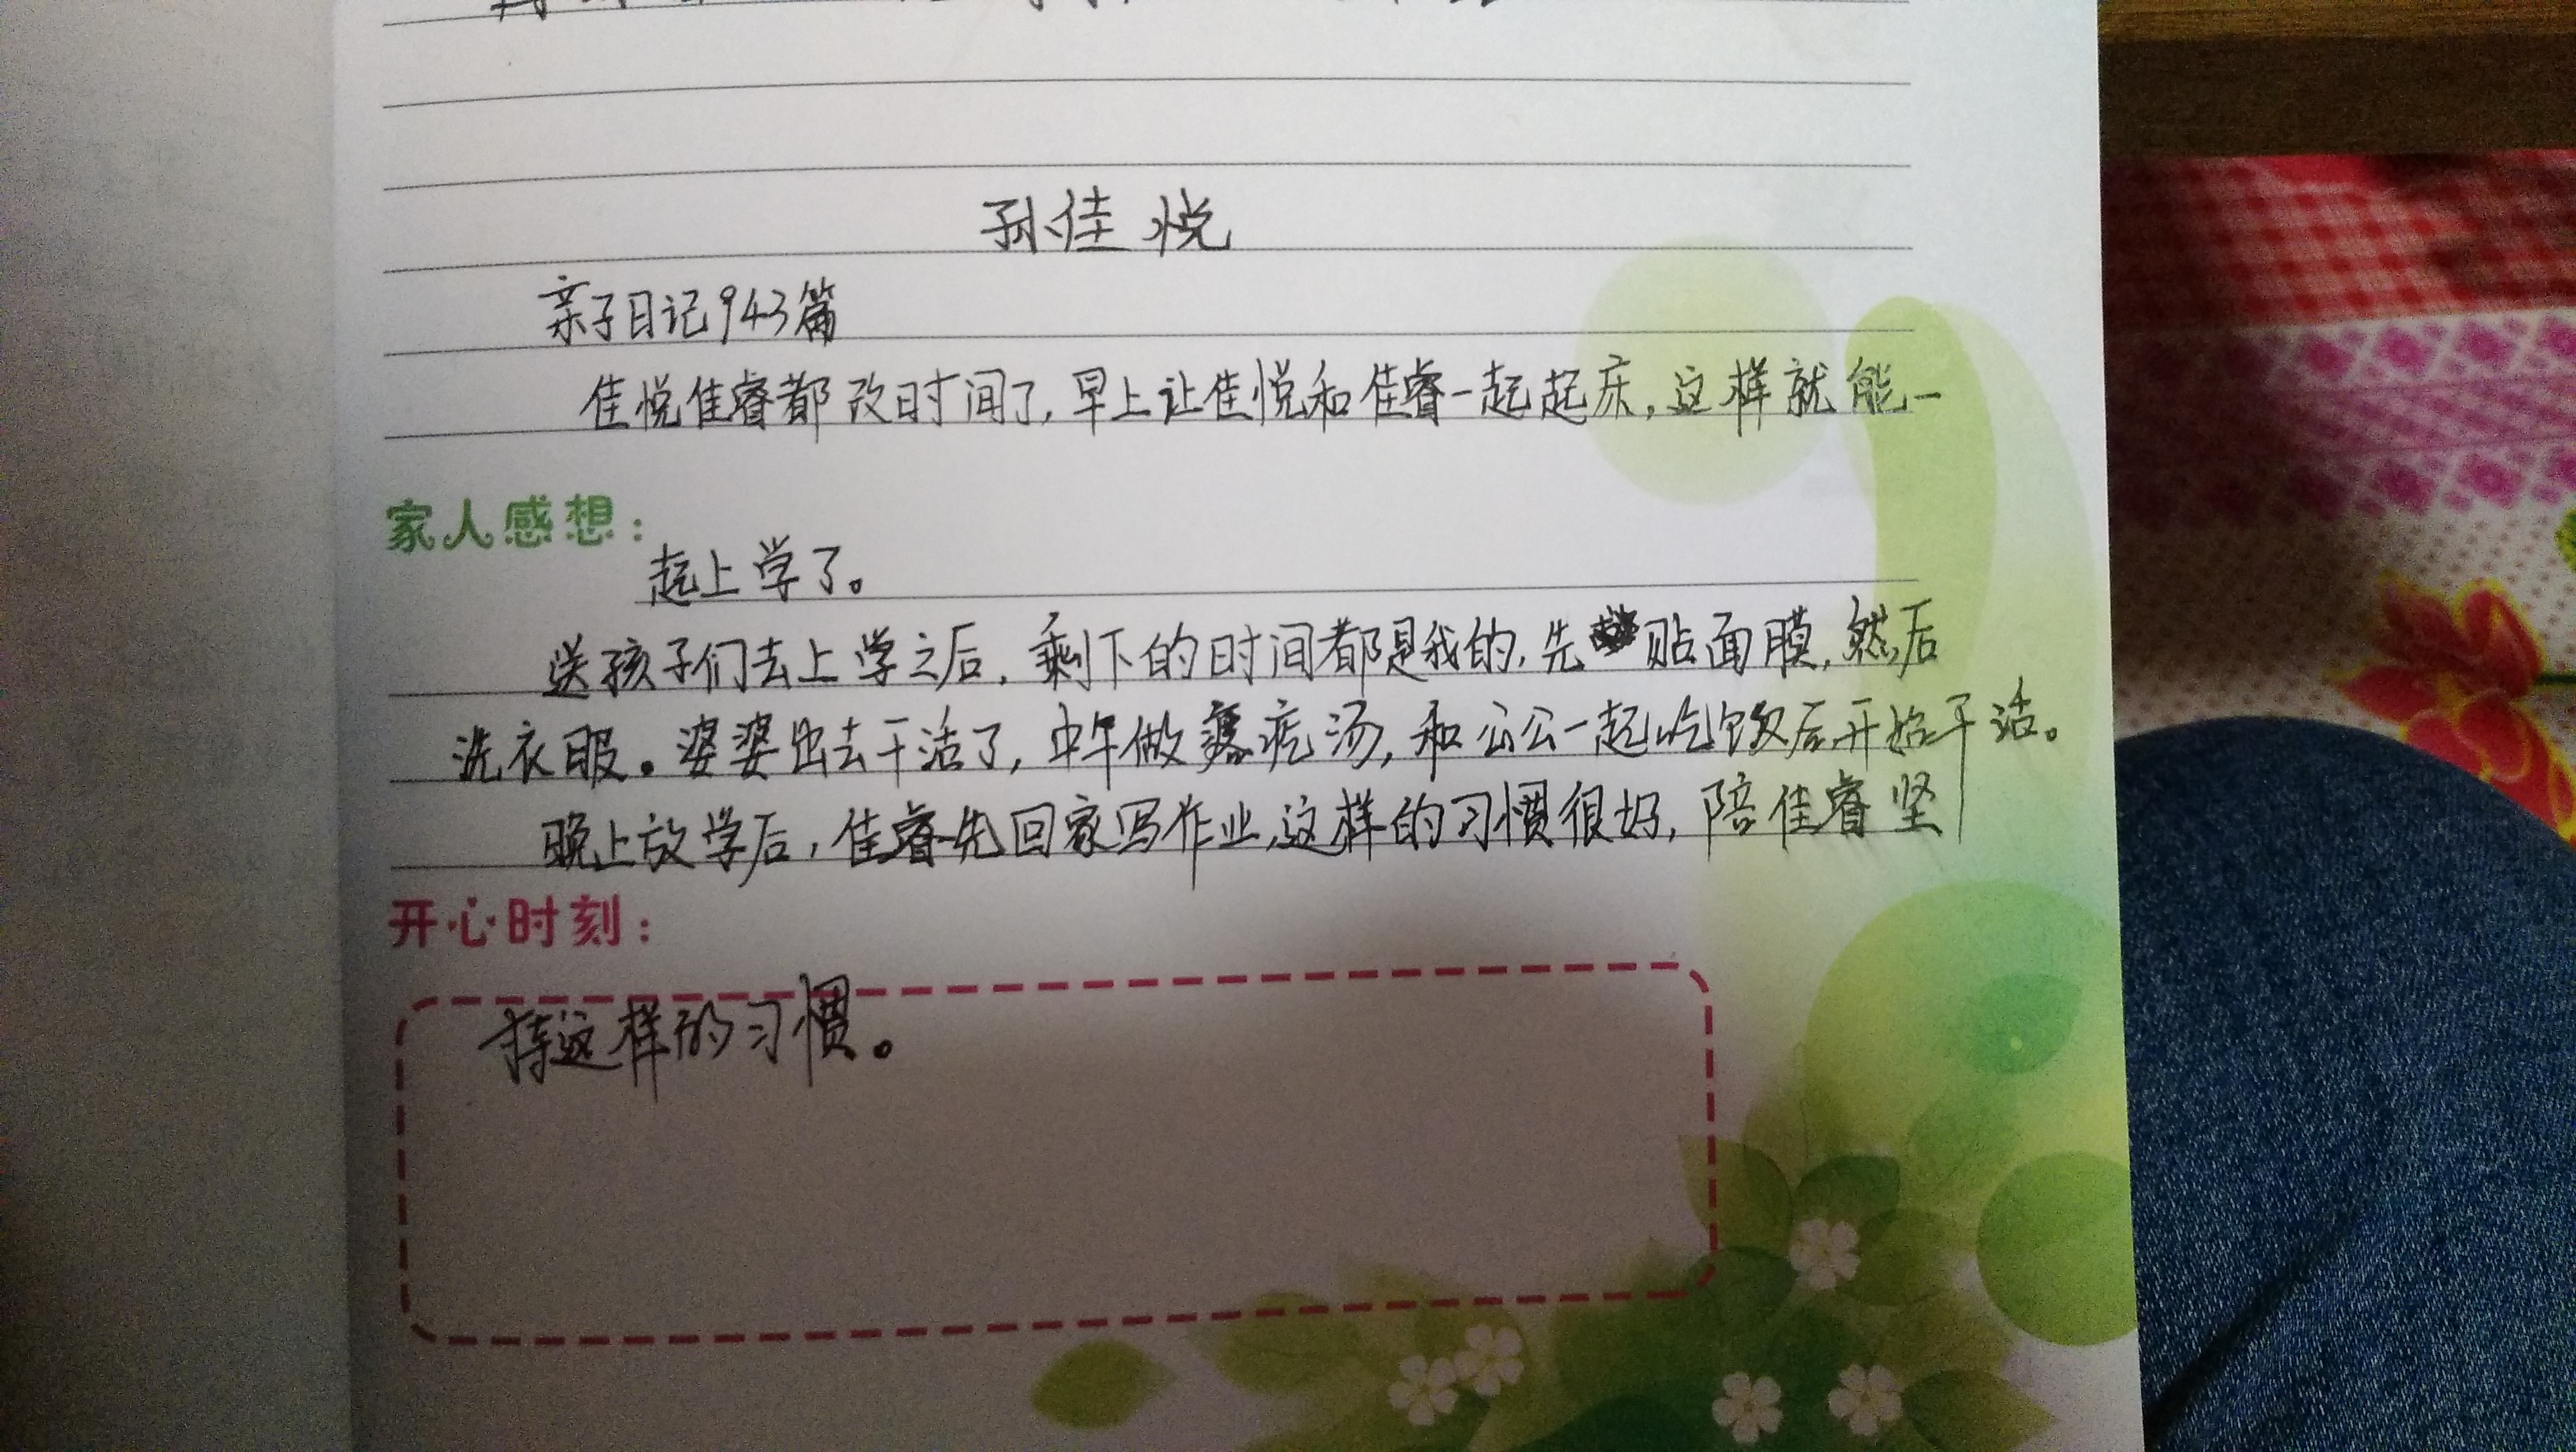 孙佳悦
亲子日记943篇
佳悦佳睿都改时间了,早上让佳悦和佳睿一起起床,这样就能一
家人感想:
起上学了。
送孩子们去上学之后,剩下的时间都是我的,先贴面膜,然后
洗衣服。婆婆出去干活了,中午做疙汤,和公公一起吃饭后开始干活。
晚上放学后,佳睿先回家写作业,这样的习惯很好,陪佳睿坚
开心时刻:
持这样的习惯。